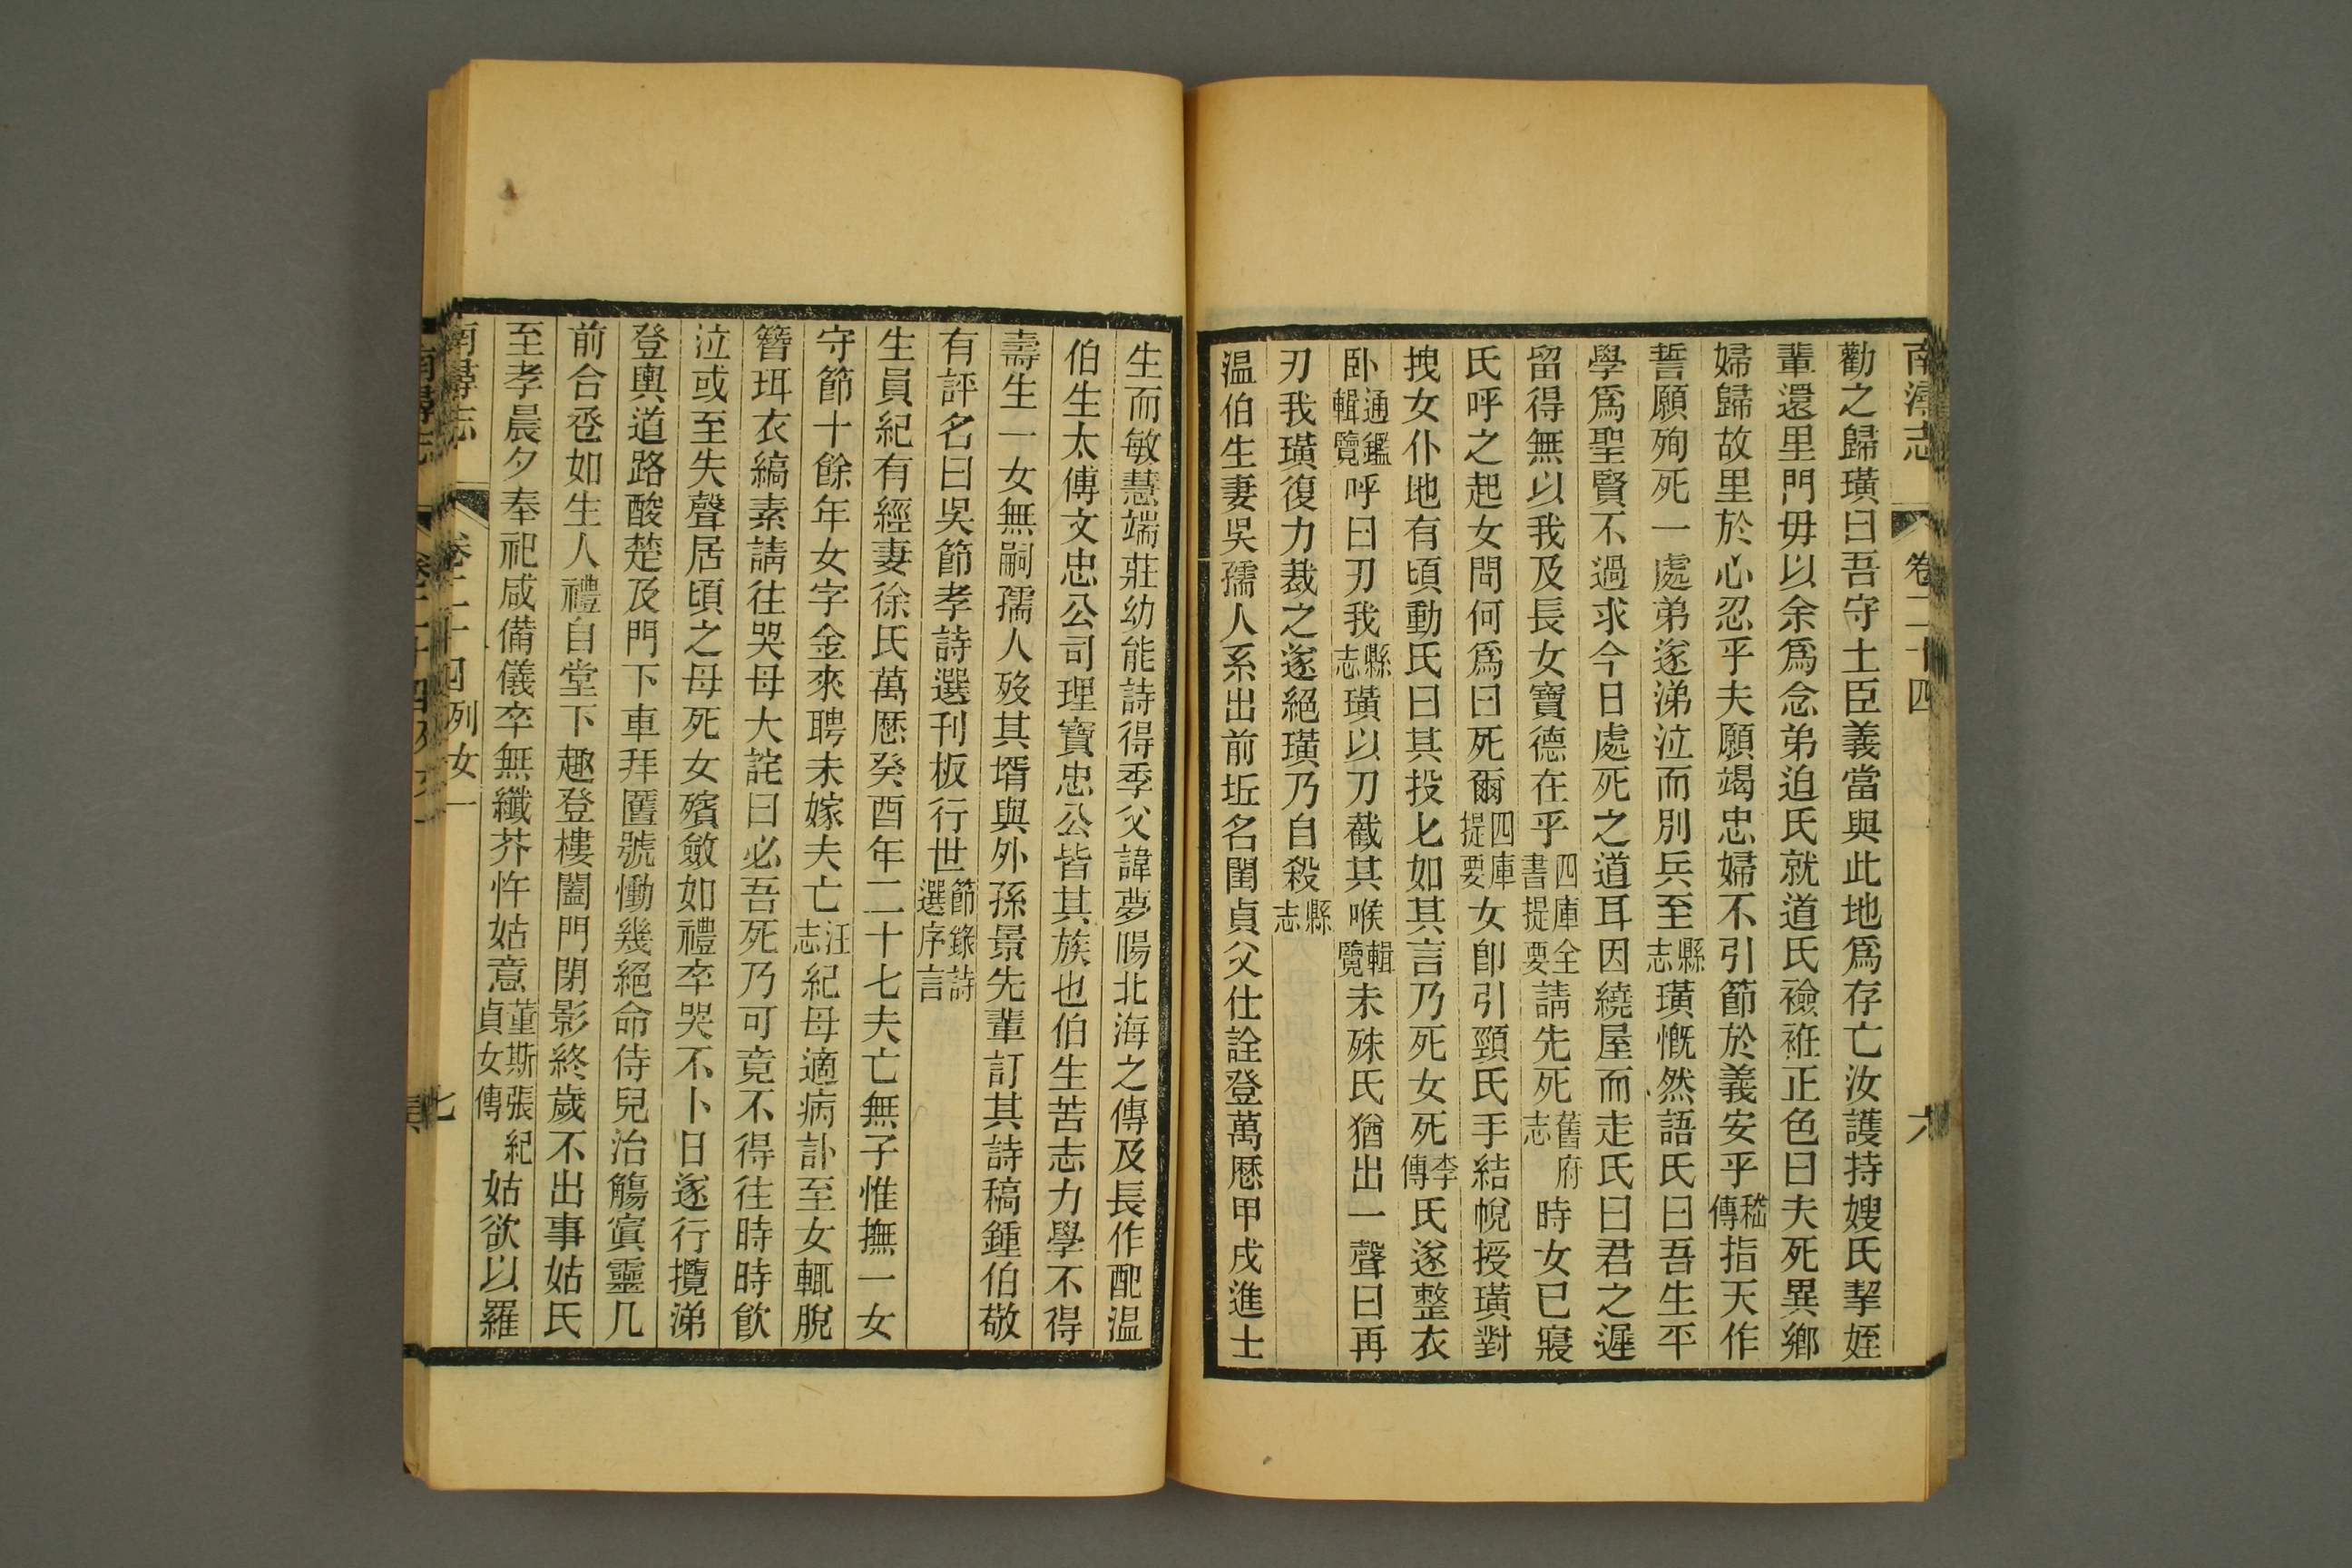 南潯志 卷二十四 六
勸之歸璜曰吾守土臣義當與此地爲存亡汝護持嫂氏挈姪
輩還里門毋以余爲念弟迫氏就道氏襝袵正色曰夫死異鄉
婦歸故里於心忍乎夫願竭忠婦不引節於義安乎嵇傳指天作
誓願殉死一處弟遂涕泣而別兵至縣志璜慨然語氏曰吾生平
學爲聖賢不過求今日處死之道耳因繞屋而走氏曰君之遲
留得無以我及長女寶德在乎四庫全書提要請先死舊府志時女已寢
氏呼之起女問何爲曰死爾四庫提要女卽引頸氏手結帨授璜對
拽女仆地有頃動氏曰其投匕如其言乃死女死李傳氏遂整衣
卧通鑑輯覽呼曰刃我縣志璜以刀截其喉輯覽未殊氏猶出一聲曰再
刃我璜復力裁之遂絕璜乃自殺縣志
温伯生妻吳孺人系出前坵名閨貞父仕詮登萬厯甲戌進士
生而敏慧端莊幼能詩得季父諱夢暘北海之傳及長作配温
伯生太傅文忠公司理寶忠公皆其族也伯生苦志力學不得
壽生一女無嗣孺人歿其壻與外孫景先輩訂其詩稿鍾伯敬
有評名曰吳節孝詩選刊板行世節錄詩選序言
生員紀有經妻徐氏萬厯癸酉年二十七夫亡無子惟撫一女
守節十餘年女字金來聘未嫁夫亡汪志紀母適病訃至女輒脫
簪珥衣縞素請往哭母大詫曰必吾死乃可竟不得往時時飮
泣或至失聲居頃之母死女殯斂如禮卒哭不卜日遂行攬涕
登輿道路酸楚及門下車拜匶號慟幾絕命侍兒治觴寘靈几
前合卺如生人禮自堂下趣登樓闔門閉影終歲不出事姑氏
至孝晨夕奉祀咸備儀卒無纖芥忤姑意董斯張紀貞女傳姑欲以羅
南潯志 卷二十四 列女一 七